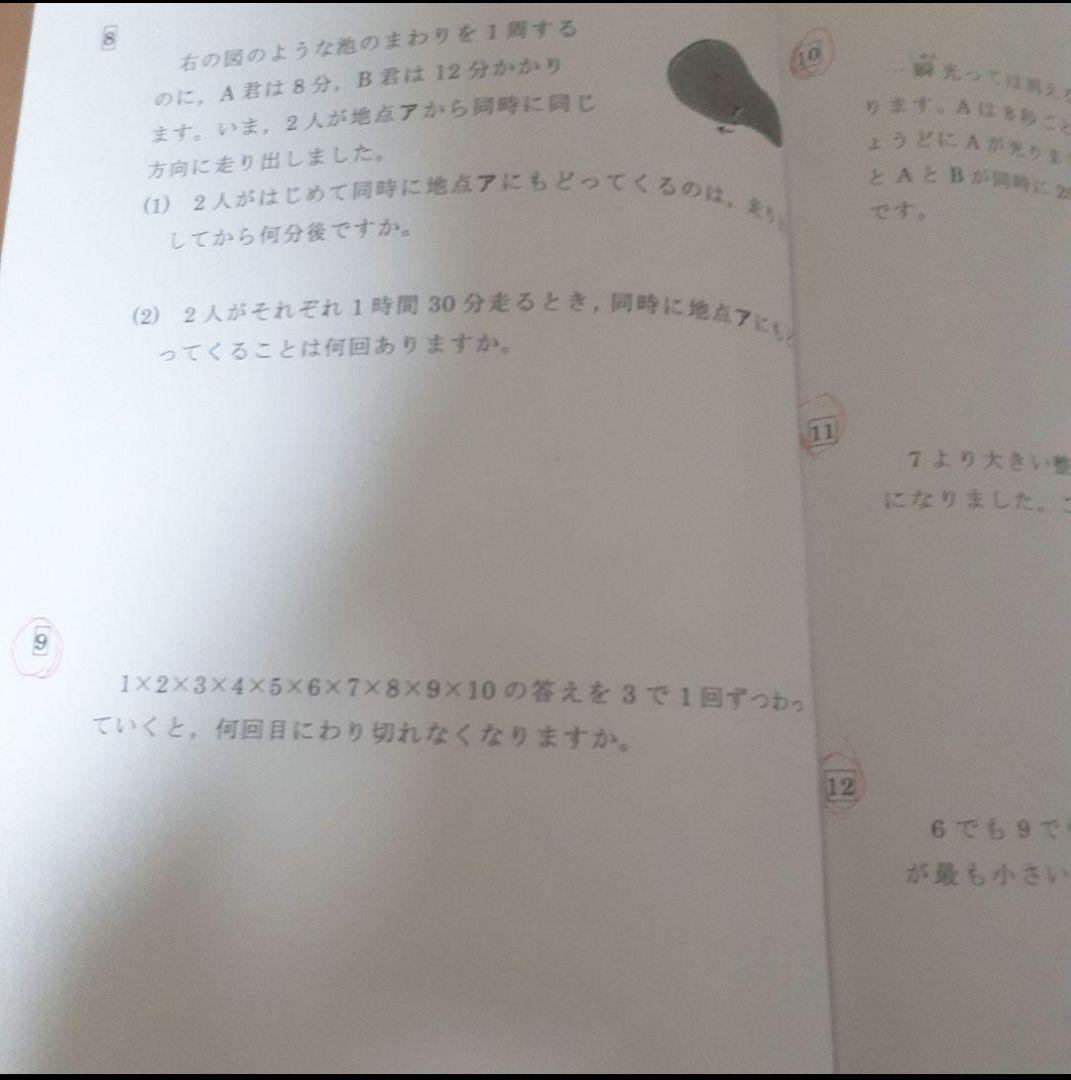 8
右の図のような池のまわりを1周する
のに，A君は8分，B君は12分かかり
ます。いま，2人が地点アから同時に同じ
方向に走り出しました。
(1) 2人がはじめて同時に地点アにもどってくるのは，走り
してから何分後ですか。
(2) 2人がそれぞれ1時間30分走るとき，同時に地点アにも
ってくることは何回ありますか。
9
1×2×3×4×5×6×7×8×9×10の答えを3で1回ずつわっ
ていくと，何回目にわり切れなくなりますか。
10
一瞬光っては消え
ります。Aは8秒ごと
ょうどにAが光りま
とAとBが同時に20
です。
11
7より大きい整
になりました。こ
12
6でも9で
が最も小さい